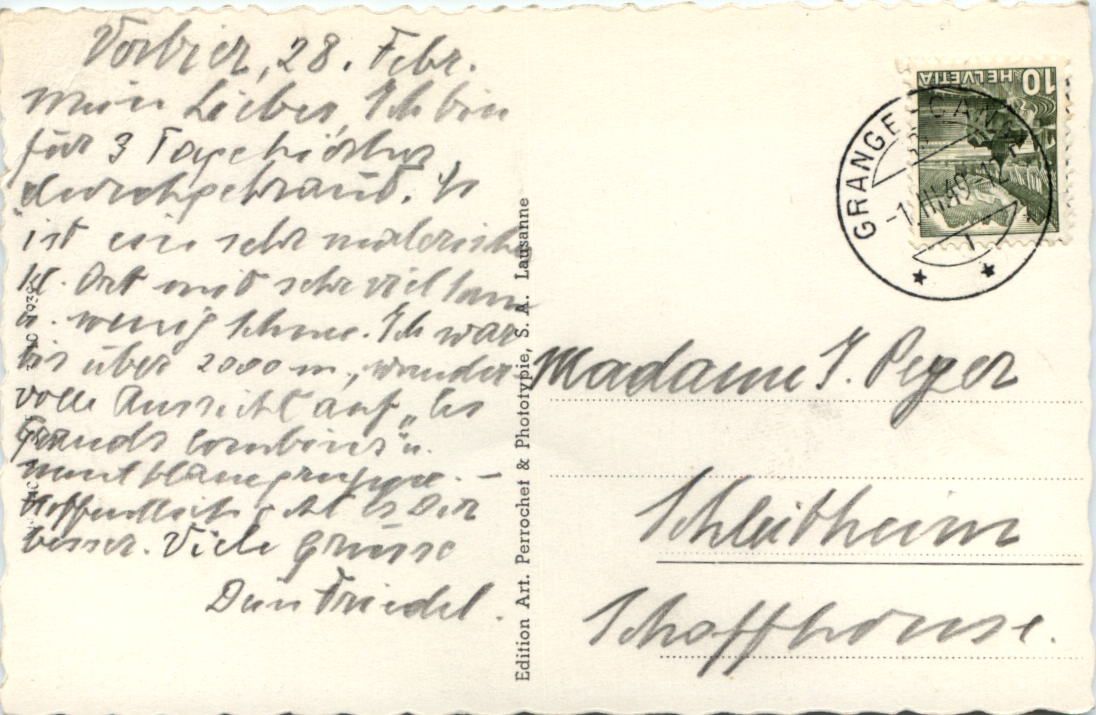 Verbier, 28. Febr.
Mein Lieber, Ich bin
für 3 Tage hierher
durchgebrannt. Es
ist ein sehr malerischer
kl. Ort mit sehr viel Sonne
u. wenig Schnee. Ich war
bis über 2000 m, wunder
volle Aussicht auf „les
Grands Combins" u.
Montblancgruppe. –
Hoffentlich geht es Dir
besser. Viele Grüsse
Dein Friedel.
Edition Art. Perrochet & Phototypie, S. A. Lausanne
HELVETIA
10
GRANGE
-1.III.49-12
Madame J. Peyer
Schleitheim
Schaffhouse.